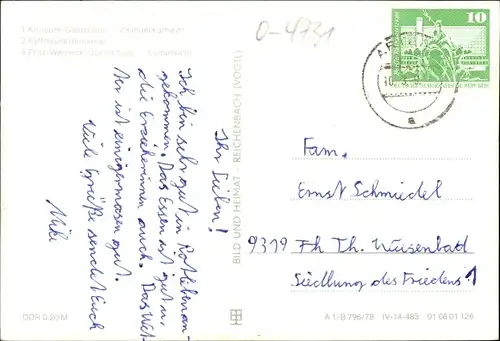 0-4731
1 Klinikum-Gaststätte 2 Kinderkurheim
2 Kyffhäuserdenkmal
4 Fritz-Weineck-
Ihr Lieben!
Ich bin sehr gut in Rottleben an-
gekommen. Das Essen ist gut u.
die Erzieherinnen auch. Das Wet-
ter ist einigermasen gut.
Viele Grüße sendet Euch
Mike
BILD UND HEIMAT REICHENBACH (VOGTL)
10
DEUTSCHE DEMOKRATISCHE REPUBLIK
a
Fam.
Ernst Schmiedel
9319 Fh Th. Neusenbad
Siedlung des Friedens 1
DDR 0,20 M
A 1/B 796/78 IV-14-483 01 08 01 126